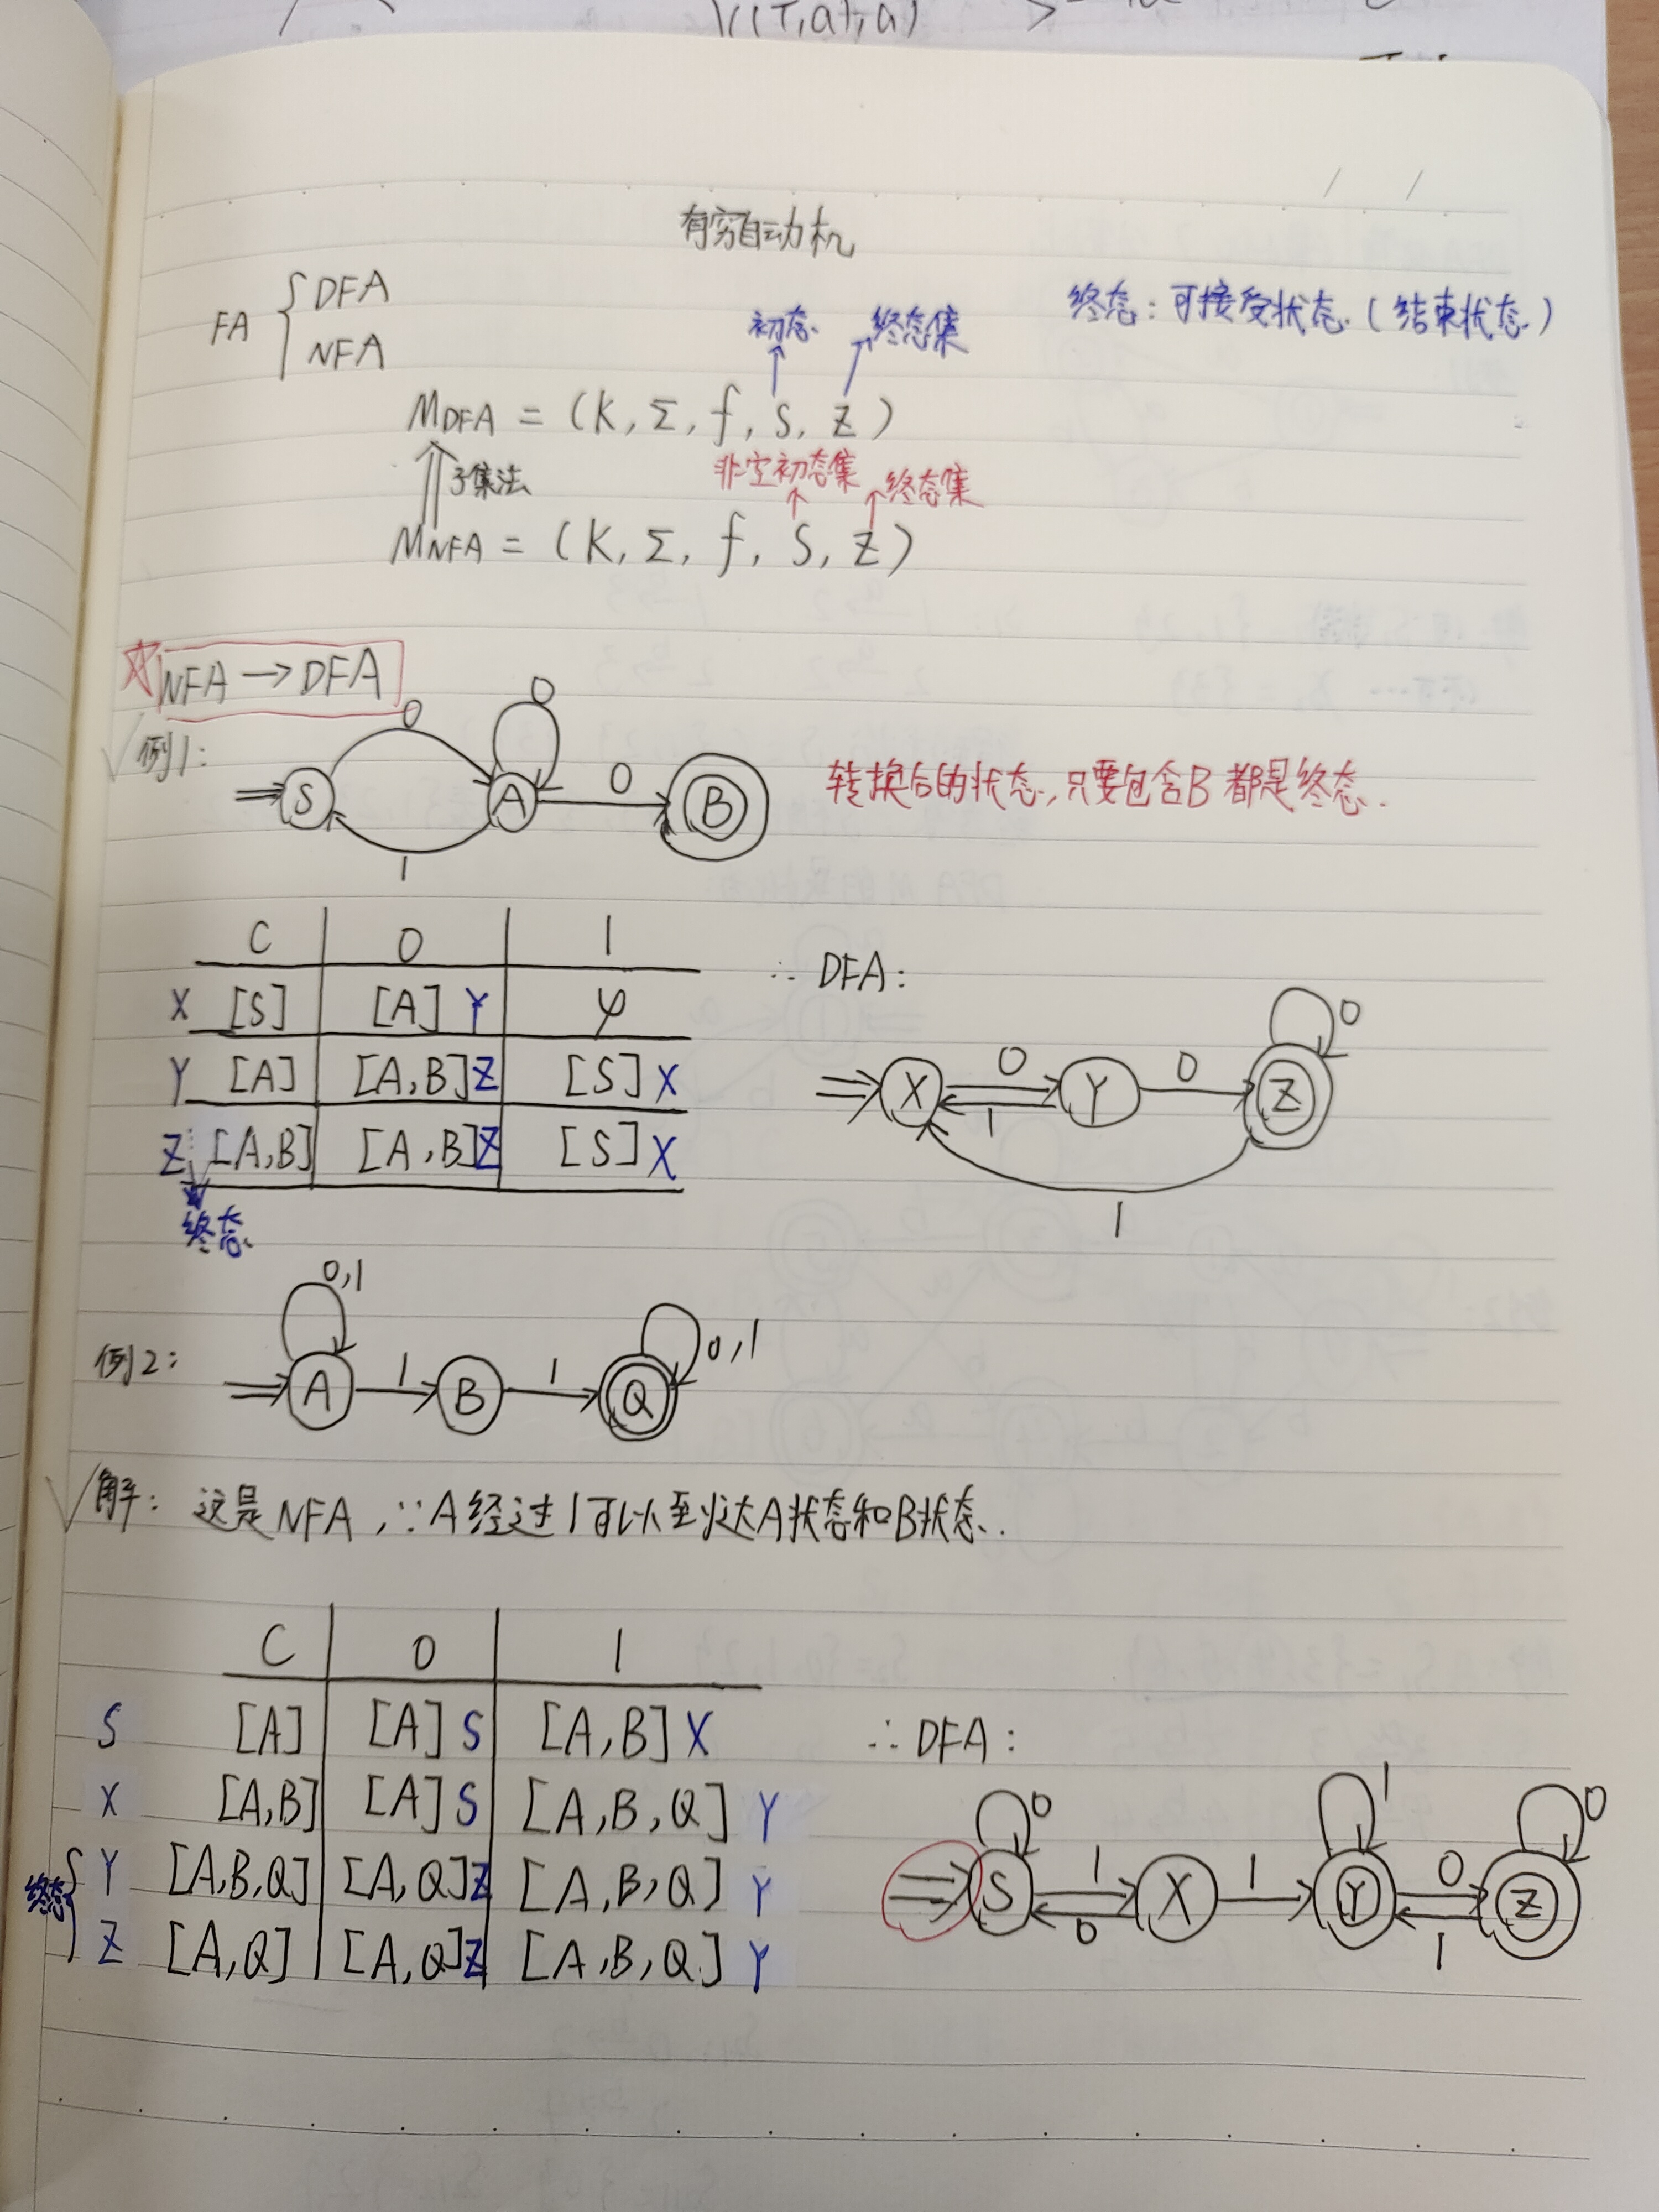 有穷自动机
FA { DFA
NFA
终态：可接受状态.（结束状态）
初态 终态集
MDFA = (K, Σ, f, S, Z)
子集法
非空初态集 终态集
MNFA = (K, Σ, f, S, Z)
☆ NFA → DFA
√例1：
0 0
S A 0 B
1
转换后的状态，只要包含B都是终态.
C 0 1
X [S] [A] Y φ
Y [A] [A,B] Z [S] X
Z [A,B] [A,B] Z [S] X
终态
∴ DFA：
0
X 0 Y 0 Z
1
1
例2：
0,1 0,1
A 1 B 1 Q
√解：这是NFA，∵A经过1可以到达A状态和B状态.
C 0 1
S [A] [A] S [A,B] X
X [A,B] [A] S [A,B,Q] Y
终态 { Y [A,B,Q] [A,Q] Z [A,B,Q] Y
Z [A,Q] [A,Q] Z [A,B,Q] Y
∴ DFA：
0 1 0
S 1 X 1 Y 0 Z
0 1